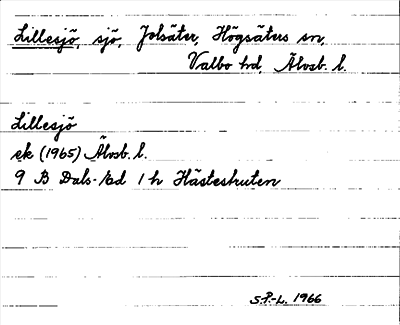 Lillesjö, sjö, Jolsäter, Högsäters sn,
Valbo hd, Älvsb. l.
Lillesjö
ek (1965) Älvsb. l.
9 B Dals-Ed 1 h Hästeskuten
S.P.-L. 1966